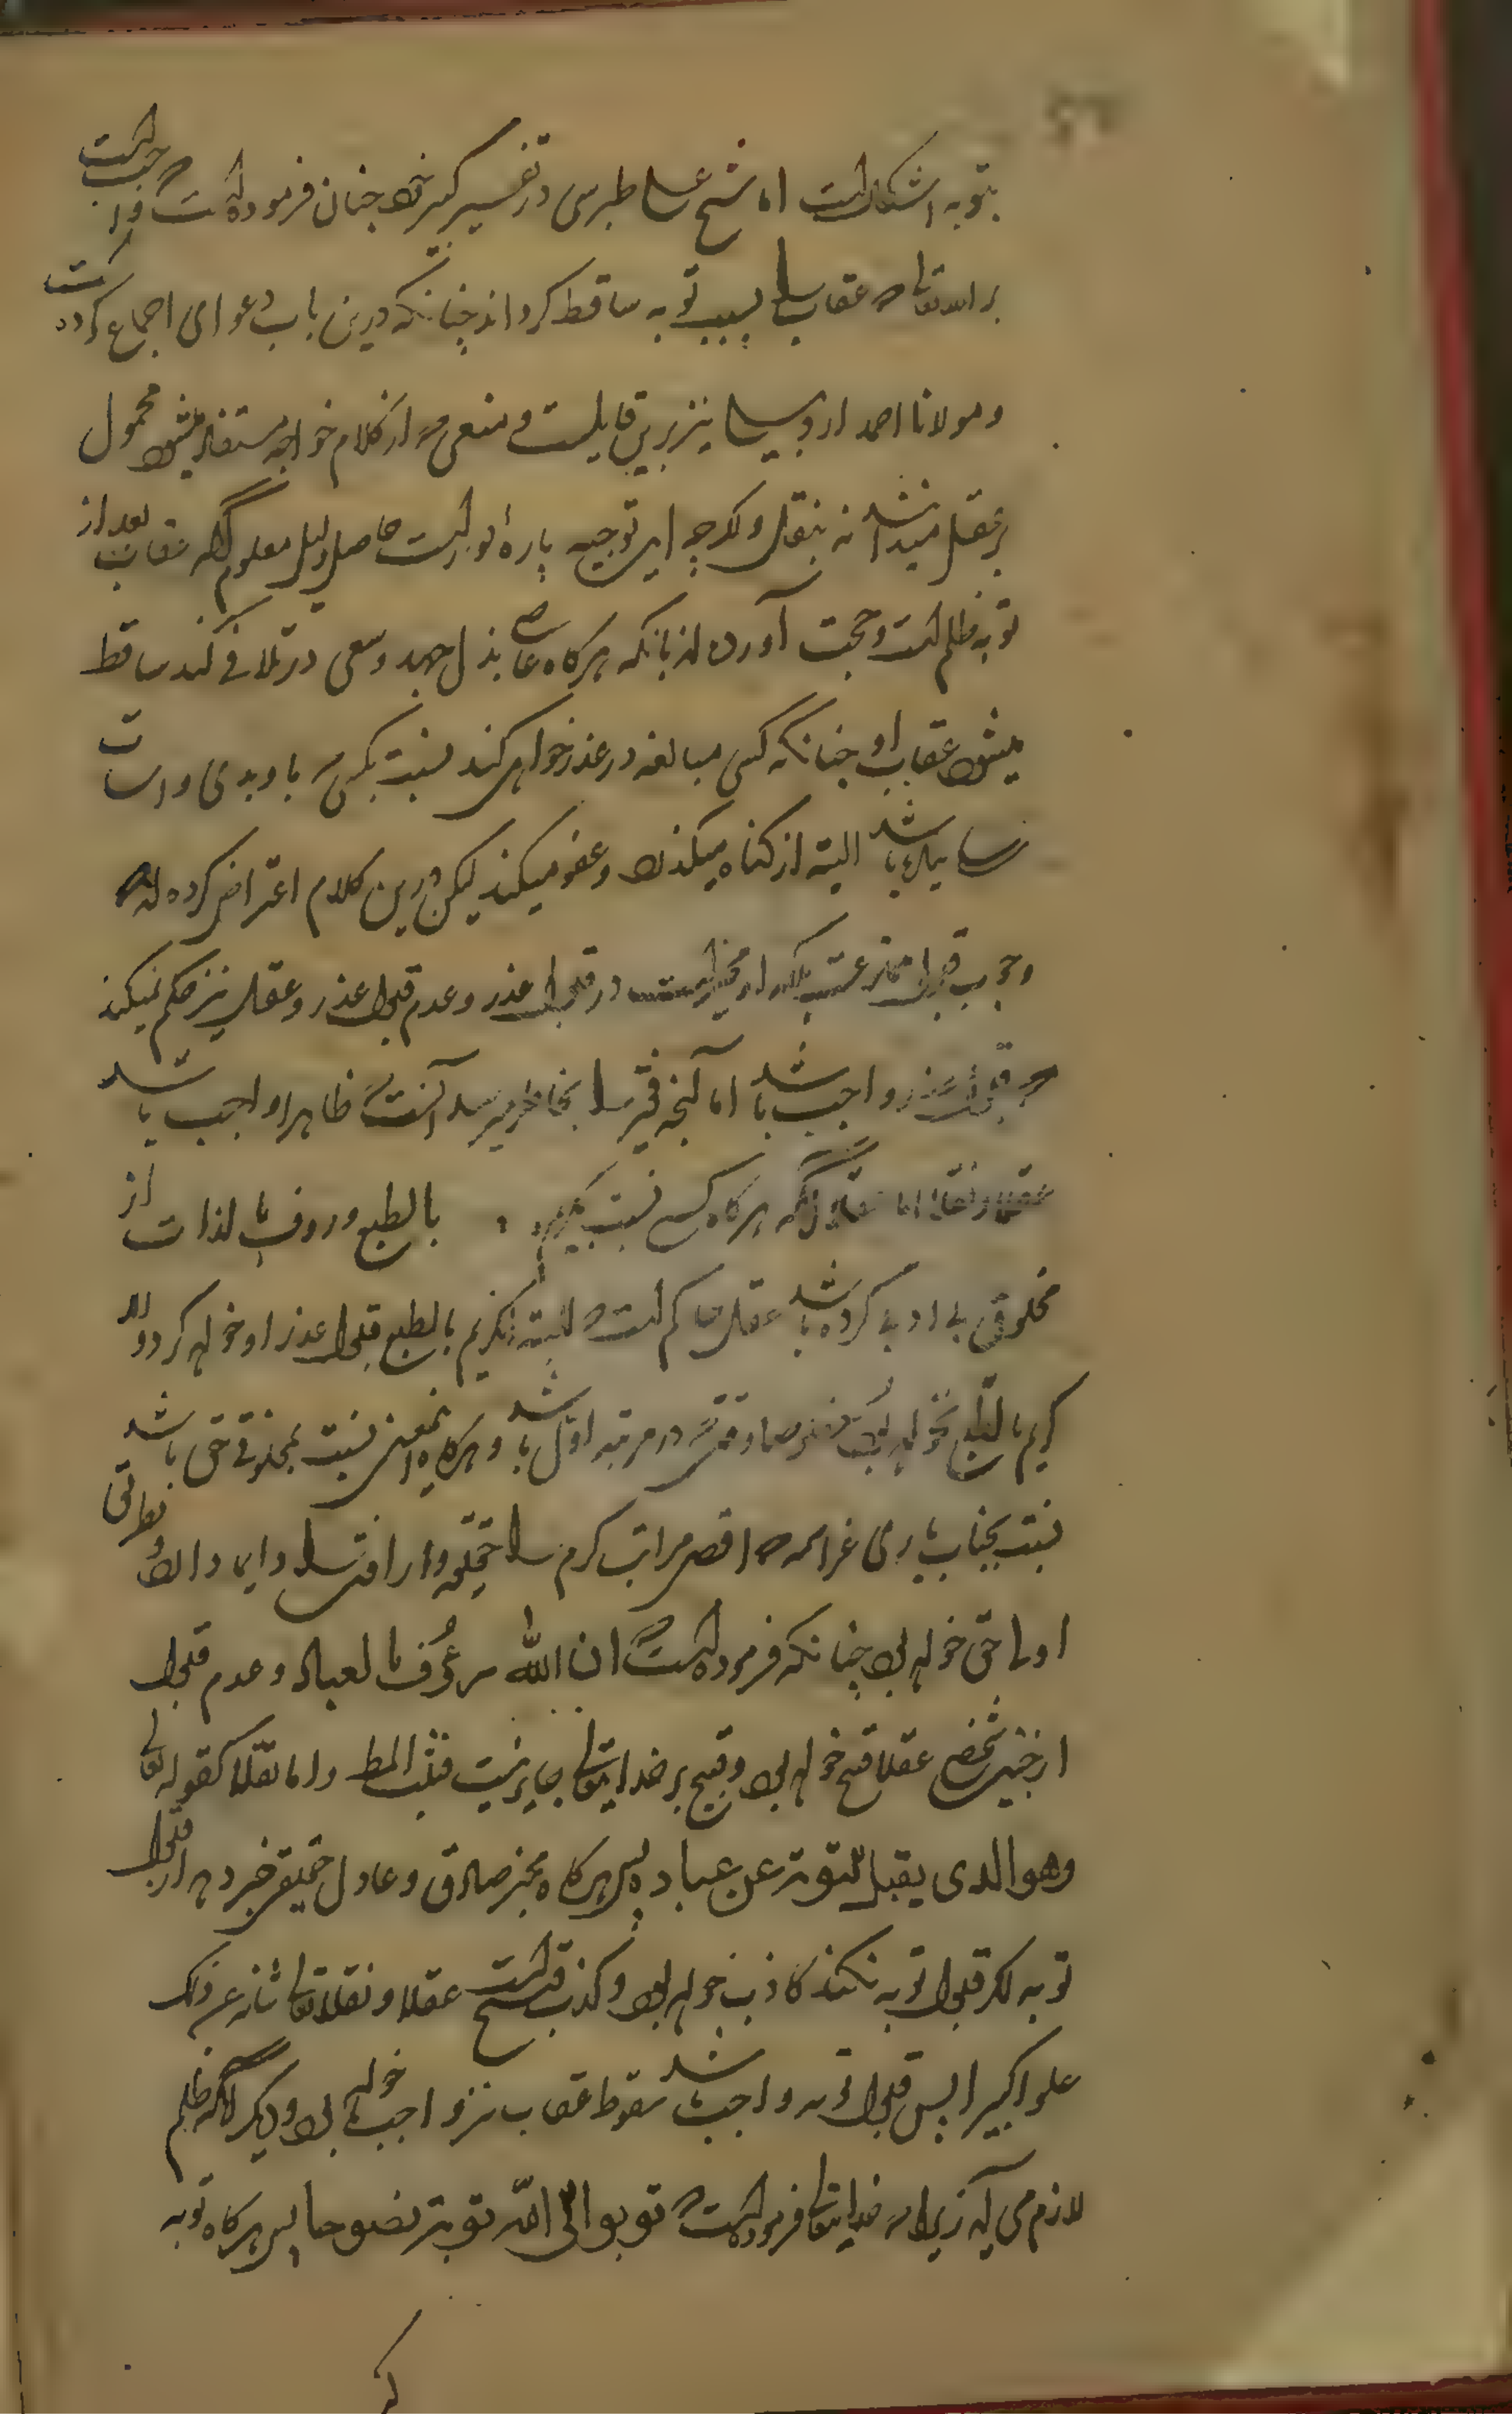 بتوبه اشکال است اما شیخ علی طبرسی در تفسیر کبیر خود چنان فرموده است که واجب است
بر الله تعالی که عقاب را بسبب توبه ساقط کرداند چنانکه درین باب دعوای اجماع کرده است
و مولانا احمد اردبیلی نیز برین قایلست و منعی که از کلام خواجه مستفاد میشود محمول
بر عقل میداند نه بنقل و اکرچه این توجیه پاره دور است حاصل دلیل معلوم آنکه عقاب بعد از
توبه ظلم است و حجت آورده اند بانکه هرکاه عاصی بذل جهد و سعی در تلافی کند ساقط
میشود عقاب او چنانکه کسی مبالغه در عذر خواهی کند نسبت بکسی که باو بدی و اسات
رسانیده باشد البته از کناه میکذرد و عفو میکند لیکن درین کلام اعتراض کرده اند که
وجوب قبول ممنوعست بلکه او مخیر است در قبول عذر و عدم قبول عذر و عقل نیز حکم نمیکند
که قبول عذر واجب باشد اما آنچه فقیر را بخاطر میرسد آنست که ظاهرا واجب باشد
عقلا و نقلا اما عقلا آنکه هرکاه کسی نسبت بکریم بالطبع و رؤف بالذات از
مخلوق بی ادبی کرده باشد عقل حاکم است که البته آنکریم بالطبع قبول عذر او خواهد کرد والا
کریم بالطبع نخواهد بود خصوصا وقتی که در مرتبه اول باشد و هرکاه اینمعنی نسبت بمخلوقی حق باشد
نسبت بجناب باری عز اسمه که اقصی مراتب کرم را حقیقة و ارافت را دارد بطریق
اولی حق خواهد بود چنانکه فرموده است که ان الله رؤف بالعباد و عدم قبول
از چنین شخصی عقلا قبیح خواهد بود و قبیح بر خدایتعالی جایز نیست فثبت المط و اما نقلا کقوله تعالی
وهو الذی یقبل التوبة عن عباده پس هرکاه مخبر صادق و عادل حقیقی خبر دهد از قبول
توبه اکر قبول توبه نکند کاذب خواهد بود و کذب قبیح است عقلا و نقلا تعالی شانه عن ذلک
علوا کبیرا پس قبول توبه واجب باشد سقوط عقاب نیز واجب خواهد بود و دیکر آنکه ظلم
لازم می آید زیرا که خدایتعالی فرموده است که توبوا الی الله توبة نصوحا پس هرکاه توبه
کند